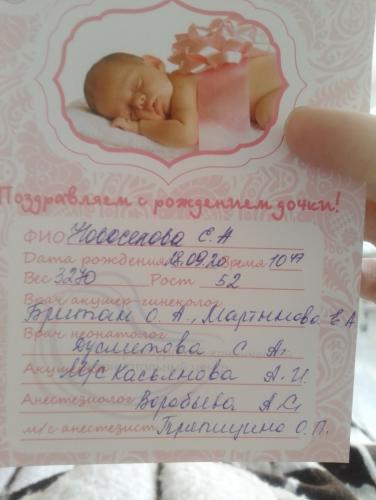 Поздравляем с рождением дочки!
ФИО Новоселова С. А
Дата рождения 18.09.20 Время 10
Вес 3270 Рост 52
Врач акушер-гинеколог
О. А., Мартынова Е. А
Врач неонатолог
С. А.
Акушерка Касьянова А. И.
Анестезиолог Воробьева А. С.
м/с анестезист О. П.